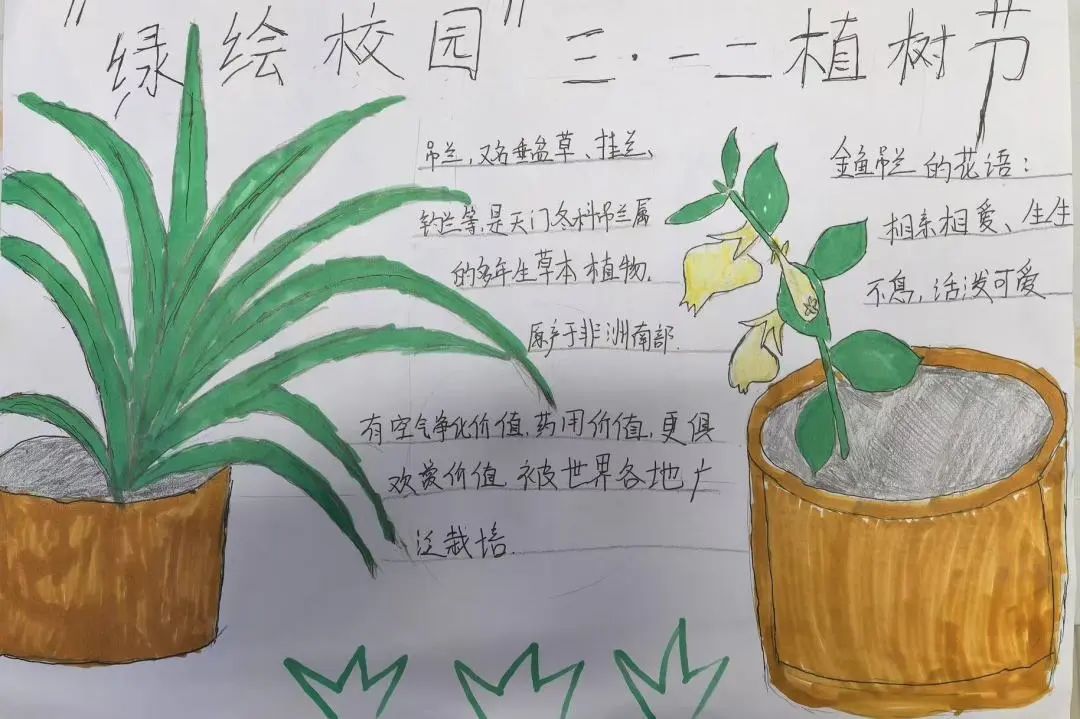 "绿绘校园" 三·一二植树节
吊兰,又名垂盆草、挂兰、
钓兰等,是天门冬科吊兰属
的多年生草本植物.
原产于非洲南部.
有空气净化价值,药用价值,更俱
欢爱价值 被世界各地广
泛栽培.
金鱼吊兰 的花语:
相亲相爱、生生
不息,活泼可爱